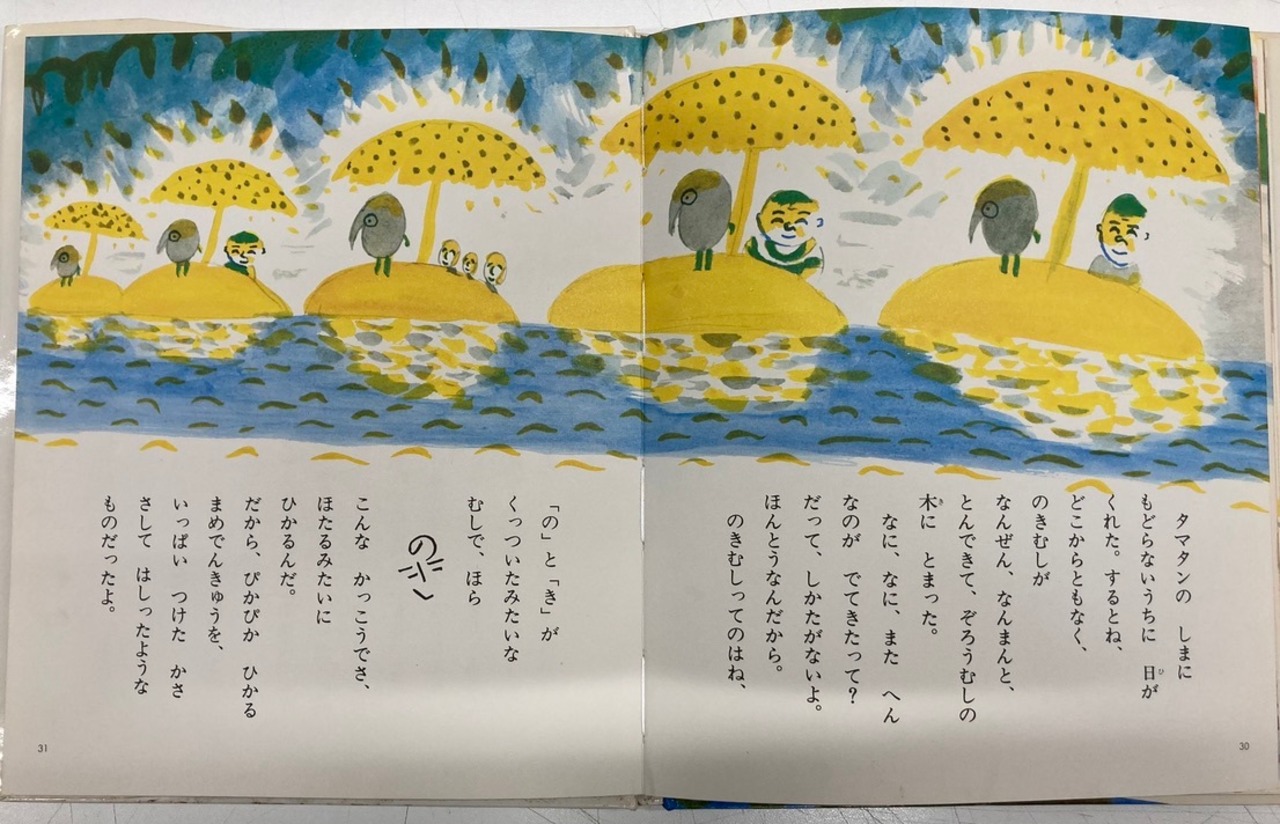 タマタンの　しまに
もどらないうちに　日が
くれた。するとね、
どこからともなく、
のきむしが
なんぜん、なんまんと、
とんできて、ぞろうむしの
木に　とまった。
なに、なに、また　へん
なのが　でてきたって？
だって、しかたがないよ。
ほんとうなんだから。
のきむしってのはね、
30
「の」と「き」が
くっついたみたいな
むしで、ほら
こんな　かっこうでさ、
ほたるみたいに
ひかるんだ。
だから、ぴかぴか　ひかる
まめでんきゅうを、
いっぱい　つけた　かさ
さして　はしったような
ものだったよ。
31